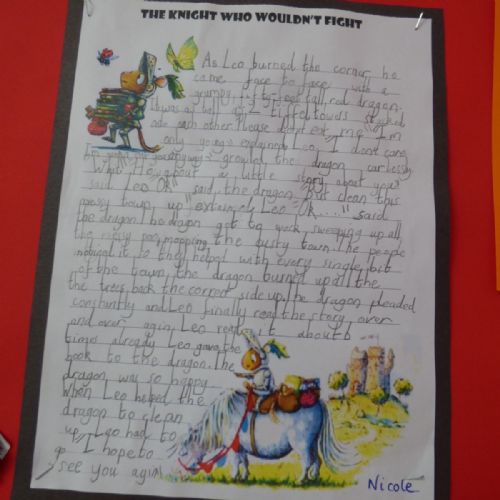 THE KNIGHT WHO WOULDN'T FIGHT
As Leo burned the corner he
came face to face with a
grumpy, fifty foot tall, red dragon.
as tall as
each other. Please don't eat me I'm
only young explained Leo, I don't care
growled the dragon carlessly
What How about a little story about you
said Leo OK said the dragon But clean this
messy town up Leo OK.... said
the dragon. The dragon got to work sweeping up all
the messy poo, mopping the dusty town. The people
it so they helped with every single bit
of the town, the dragon burned up all the
the trees back the correct side up. he dragon pleaded
constantly and Leo finally read the story over
and over agin Leo read it about 6
times already Leo gave the
book to the dragon. The
dragon was so happy
when Leo helped the
dragon to clean
up Leo had to
go I hope to
see you agin
Nicole